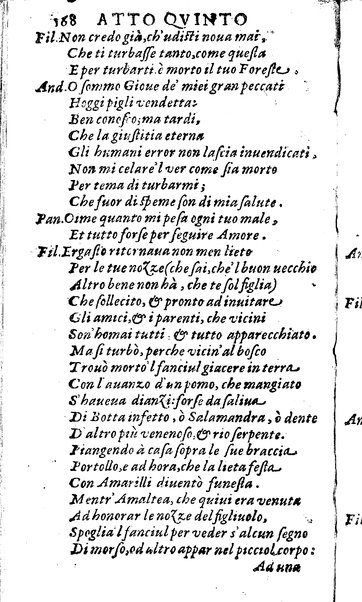 168 ATTO QVINTO
Fil. Non credo già, ch'udisti noua mai,
Che ti turbasse tanto, come questa
E per turbarti è morto il tuo Foreste.
And. O sommo Gioue de' miei gran peccati
Hoggi pigli vendetta:
Ben conosco; ma tardi,
Che la giustitia eterna
Gli humani error non lascia inuendicati,
Non mi celare'l ver come sia morto
Per tema di turbarmi;
Che fuor di speme son di mia salute.
Pan. Oime quanto mi pesa ogni tuo male,
Et tutto forse per seguire Amore.
Fil. Ergasto ritornaua non men lieto
Per le tue nozze (che sai, che'l buon uecchio
Altro bene non hà, che te sol figlia)
Che sollecito, & pronto ad inuitare
Gli amici, & i parenti, che vicini
Son'homai tutti & tutto apparecchiato.
Ma si turbò, perche vicin'al bosco
Trouò morto'l fanciul giacere in terra
Con l'auanzo d'un pomo, che mangiato
S'haueua dianzi: forse da saliua
Di Botta infetto, ò Salamandra, ò dente
D'altro più venenoso, & rio serpente.
Piangendo à casa sopra le sue braccia
Portollo, e ad hora, che la lieta festa
Con Amarilli diuentò funesta.
Mentr'Amaltea, che quiui era venuta
Ad honorar le nozze del figliuolo,
Spoglia'l fanciul per veder s'alcun segno
Di morso, od altro appar nel picciol corpo:
Ad una
Fil
An
Fil
An
Fil